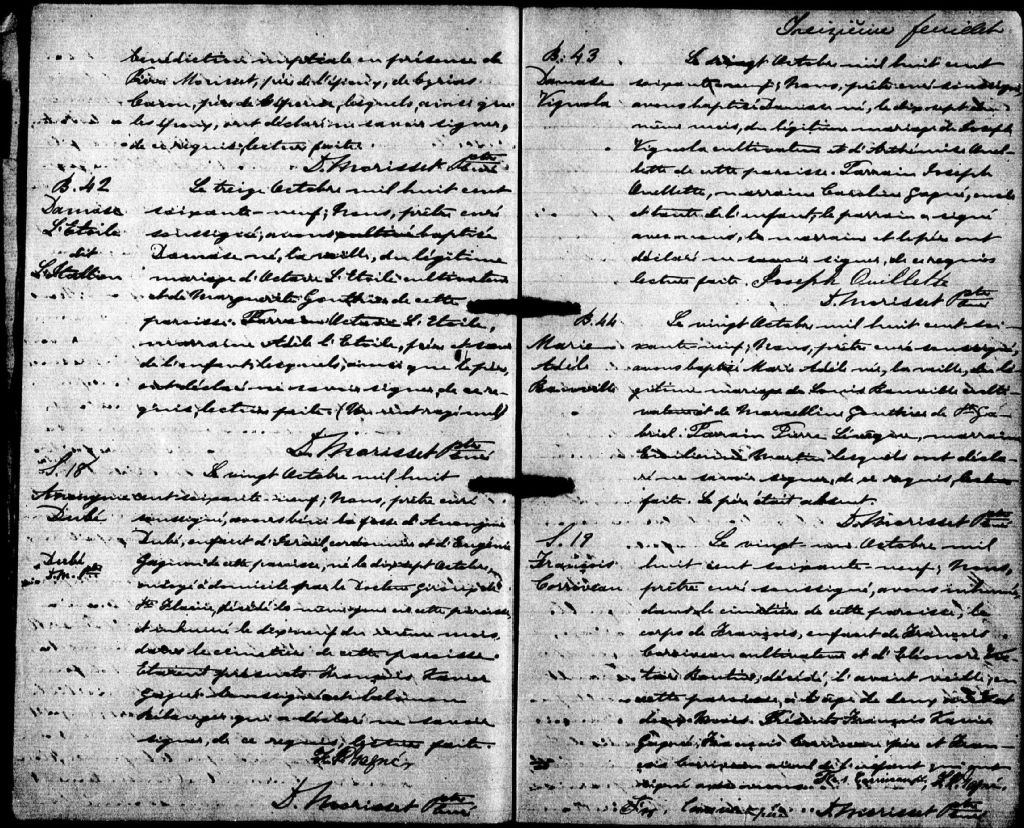 bénédiction nuptiale en présence de
Morisset, père de l'épouse, de
Caron, père de lesquels, ainsi que
les époux, ont déclaré ne savoir signer,
de ce requis, lecture faite.
D. Morisset Ptre Curé
B. 42
Damase
L'Etoile
dit
L'Italien
Le treize Octobre mil huit cent
soixante-neuf; Nous, prêtre curé
soussigné, avons baptisé
Damase né, la veille, du légitime
mariage d'Octave L'Etoile cultivateur
et de Marguerite Gauthier de cette
paroisse. Parrain Octave L'Etoile,
marraine Adèle L'Etoile, père et sœur
de l'enfant, lesquels, ainsi que le père,
ont déclaré ne savoir signer, de ce re-
quis, lecture faite. (Un mot rayé nul)
D. Morisset Ptre Curé
S. 18
Anonyme
Dubé
Dubé
Le vingt Octobre mil huit
cent soixante neuf; Nous, prêtre curé
soussigné, avons béni la fosse d'Anonyme
Dubé, enfant d'Israël, cordonnier et d'Eugénie
Gagnon de cette paroisse, né le dix sept Octobre,
ondoyé à domicile par le Docteur de
Ste Claire, décédé le même jour en cette paroisse,
et inhumé le dix neuf du même mois
dans le cimetière de cette paroisse.
Etaient présents François Xavier
Gagné soussigné et
Bélanger qui a déclaré ne savoir
signer, de ce requis, lecture faite.
F. X. Gagné
D. Morisset Ptre Curé
Treizième feuillet
B. 43
Damase
Vignola
Le vingt Octobre mil huit cent
soixante neuf; Nous, prêtre curé soussigné,
avons baptisé Damase né, le dix sept du
même mois, du légitime mariage de Joseph
Vignola cultivateur et d'Arthémise Ouel-
lette de cette paroisse. Parrain Joseph
Ouellette, marraine Caroline Gagné, oncle
et tante de l'enfant; le parrain a signé
avec nous, la marraine et le père ont
déclaré ne savoir signer, de ce requis
lecture faite. Joseph Ouellette
D. Morisset Ptre Curé
B. 44
Marie
Adèle
Le vingt Octobre mil huit cent soi-
xante neuf; Nous, prêtre curé soussigné,
avons baptisé Marie Adèle née, la veille, du lé-
gitime mariage de Louis culti-
vateur et de Marcelline Gauthier de St Ga-
briel. Parrain Pierre marraine
lesquels ont décla-
ré ne savoir signer, de ce requis, lecture
faite. Le père était absent.
D. Morisset Ptre
S. 19
François
Corriveau
Le vingt-un Octobre mil
huit cent soixante neuf; Nous,
prêtre curé soussigné, avons inhumé
dans le cimetière de cette paroisse, le
corps de François, enfant de François
Corriveau cultivateur et d'Eléonore
décédé, l'avant veille, en
cette paroisse, à l'âge de deux ans et
deux mois. Présents François Xavier
Gagné, François Corriveau père et Fran-
çois Corriveau aïeul de l'enfant qui ont
signé avec nous. Frs Corriveau, F. X. Gagné,
D. Morisset Ptre Curé